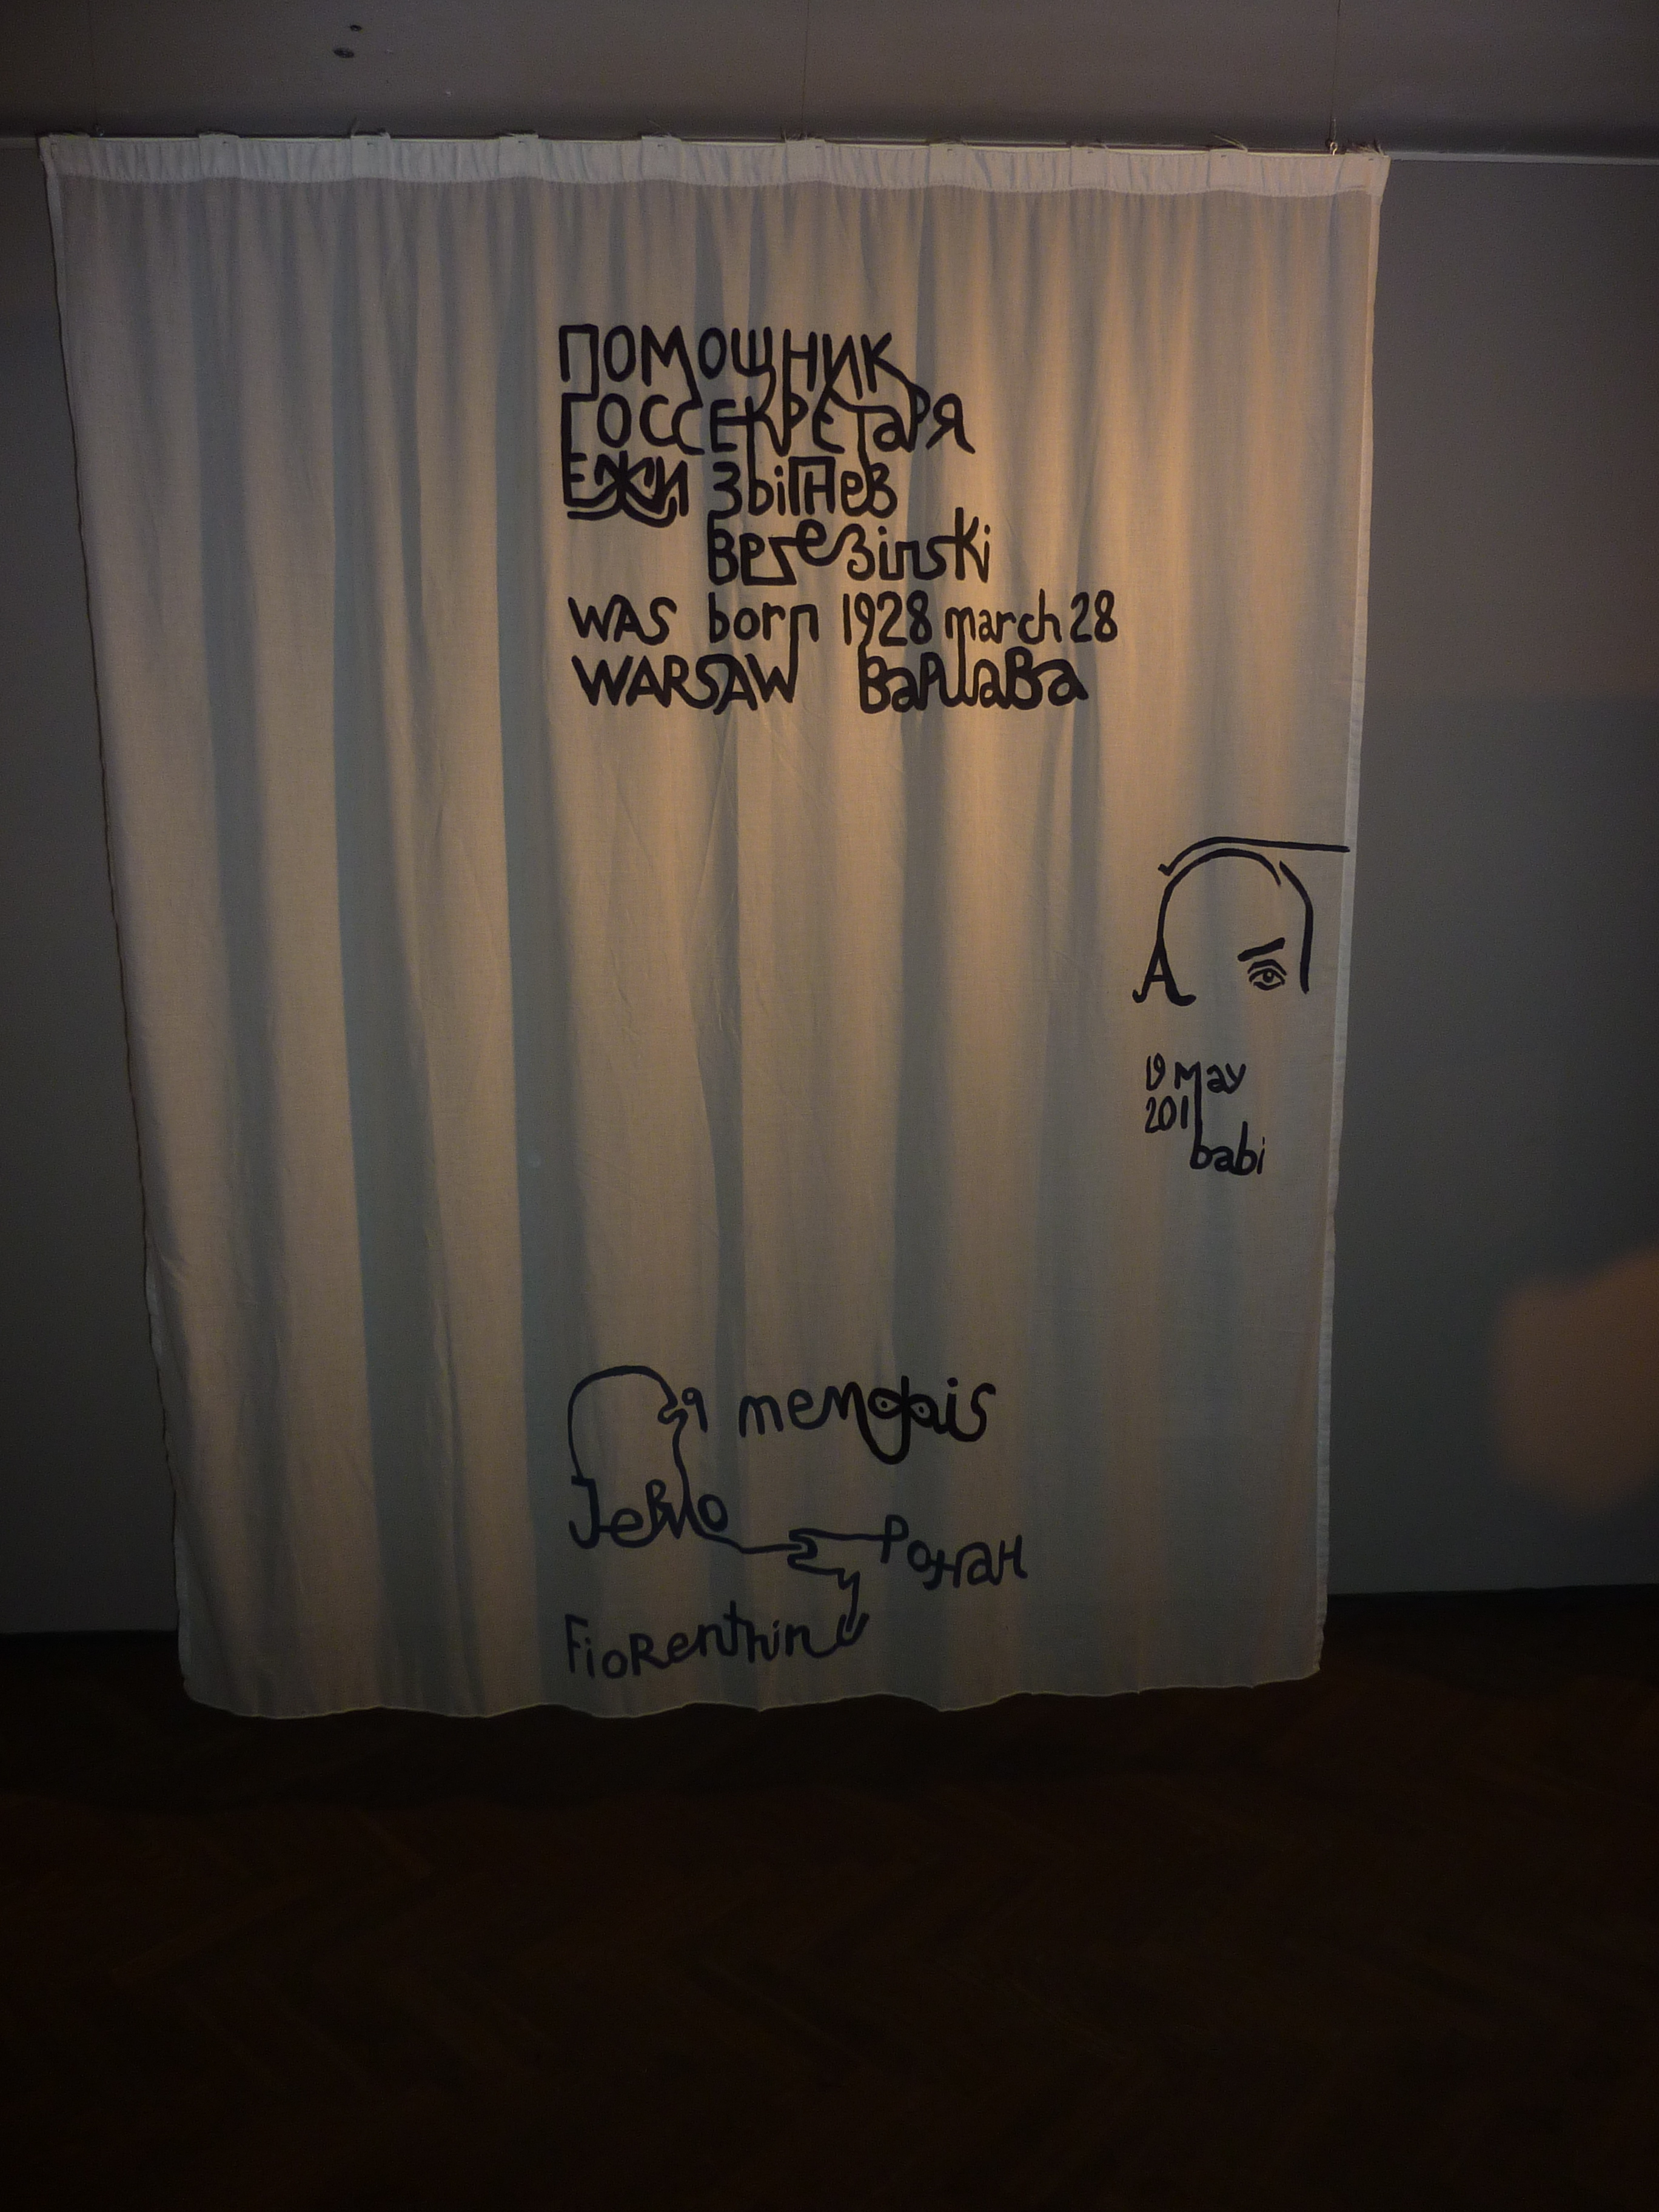 ПОМОЩНИК
ГОССЕКРЕТаРЯ
ЕЖИ ЗбiГНеВ
Berezinski
WAS born 1928 march 28
WARSAW ВаРшаВа
A
19 May
2011
babi
Fiorenthin